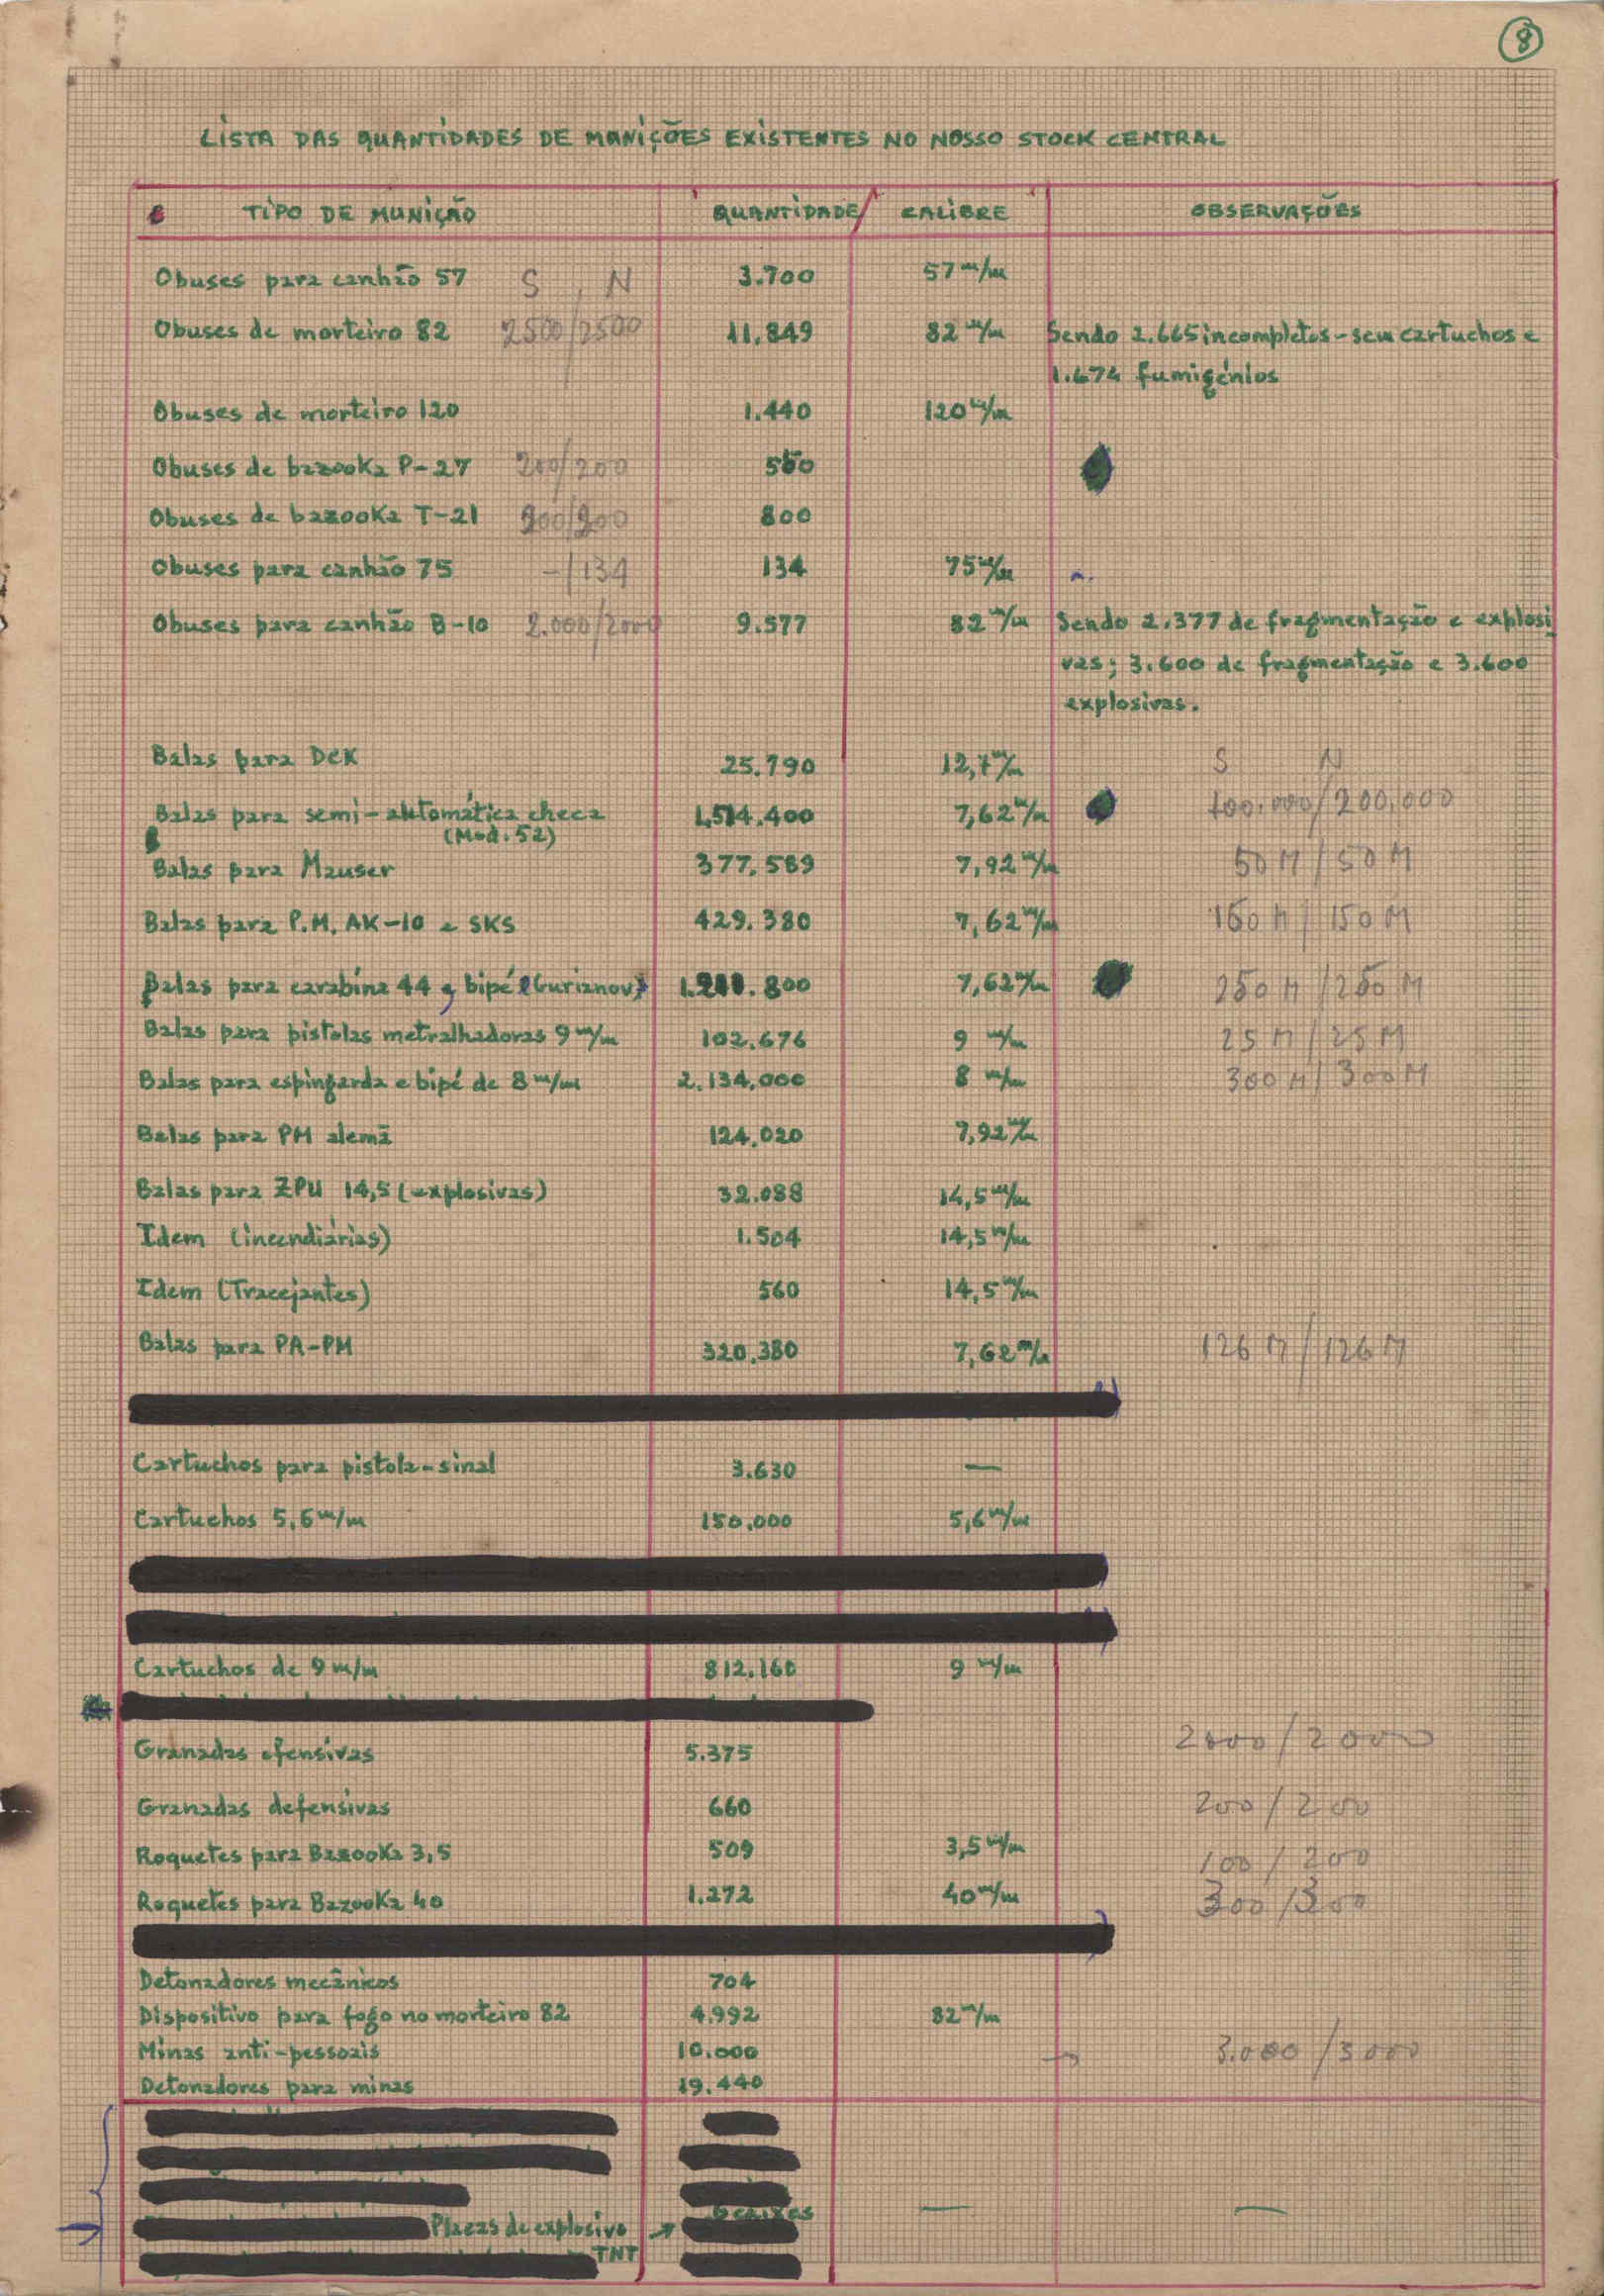 8
LISTA DAS QUANTIDADES DE MUNIÇÕES EXISTENTES NO NOSSO STOCK CENTRAL
TIPO DE MUNIÇÃO QUANTIDADE CALIBRE OBSERVAÇÕES
Obuses para canhão 57 S N 3.700 57 m/m
Obuses de morteiro 82 2500/2500 11.849 82 m/m Sendo 2.665 incompletos - sem cartuchos e
1.674 fumigénios
Obuses de morteiro 120 1.440 120 m/m
Obuses de bazooka P-27 200/200
Obuses de bazooka T-21 800
Obuses para canhão 75 -/134 134 75 m/m
Obuses para canhão B-10 2.000/2000 9.577 82 m/m Sendo 2.377 de fragmentação e explosi
vas; 3.600 de fragmentação e 3.600
explosivas.
Balas para DCK 25.790 12,7 m/m S N
Balas para semi-automática checa 1.514.400 7,62 m/m 100.000/200.000
(Mod. 52)
Balas para Mauser 377.589 7,92 m/m 50 M/50 M
Balas para P.M. AK-10 e SKS 429.380 7,62 m/m 150 M/150 M
Balas para carabina 44 e bipé (Gurianov) 7,62 m/m 250 M/250 M
Balas para pistolas metralhadoras 9 m/m 102.676 9 m/m 25 M/25 M
Balas para espingarda e bipé de 8 m/m 2.134.000 8 m/m 300 M/300 M
Balas para PM alemã 124.020 7,92 m/m
Balas para ZPU 14,5 (explosivas) 32.088 14,5 m/m
Idem (incendiárias) 1.504 14,5 m/m
Idem (Tracejantes) 560 14,5 m/m
Balas para PA-PM 320.380 7,62 m/m 126 M/126 M
Cartuchos para pistola-sinal 3.630 —
Cartuchos 5,6 m/m 150.000 5,6 m/m
Cartuchos de 9 m/m 812.160 9 m/m
Granadas ofensivas 5.375 2000/2000
Granadas defensivas 660 200/200
Roquetes para Bazooka 3,5 509 3,5 m/m 100/200
Roquetes para Bazooka 40 1.272 40 m/m 300/300
Detonadores mecânicos 704
Dispositivo para fogo no morteiro 82 4.992 82 m/m
Minas anti-pessoais 10.000 3.000/3000
Detonadores para minas 19.440
Placas de explosivo → caixas — —
TNT